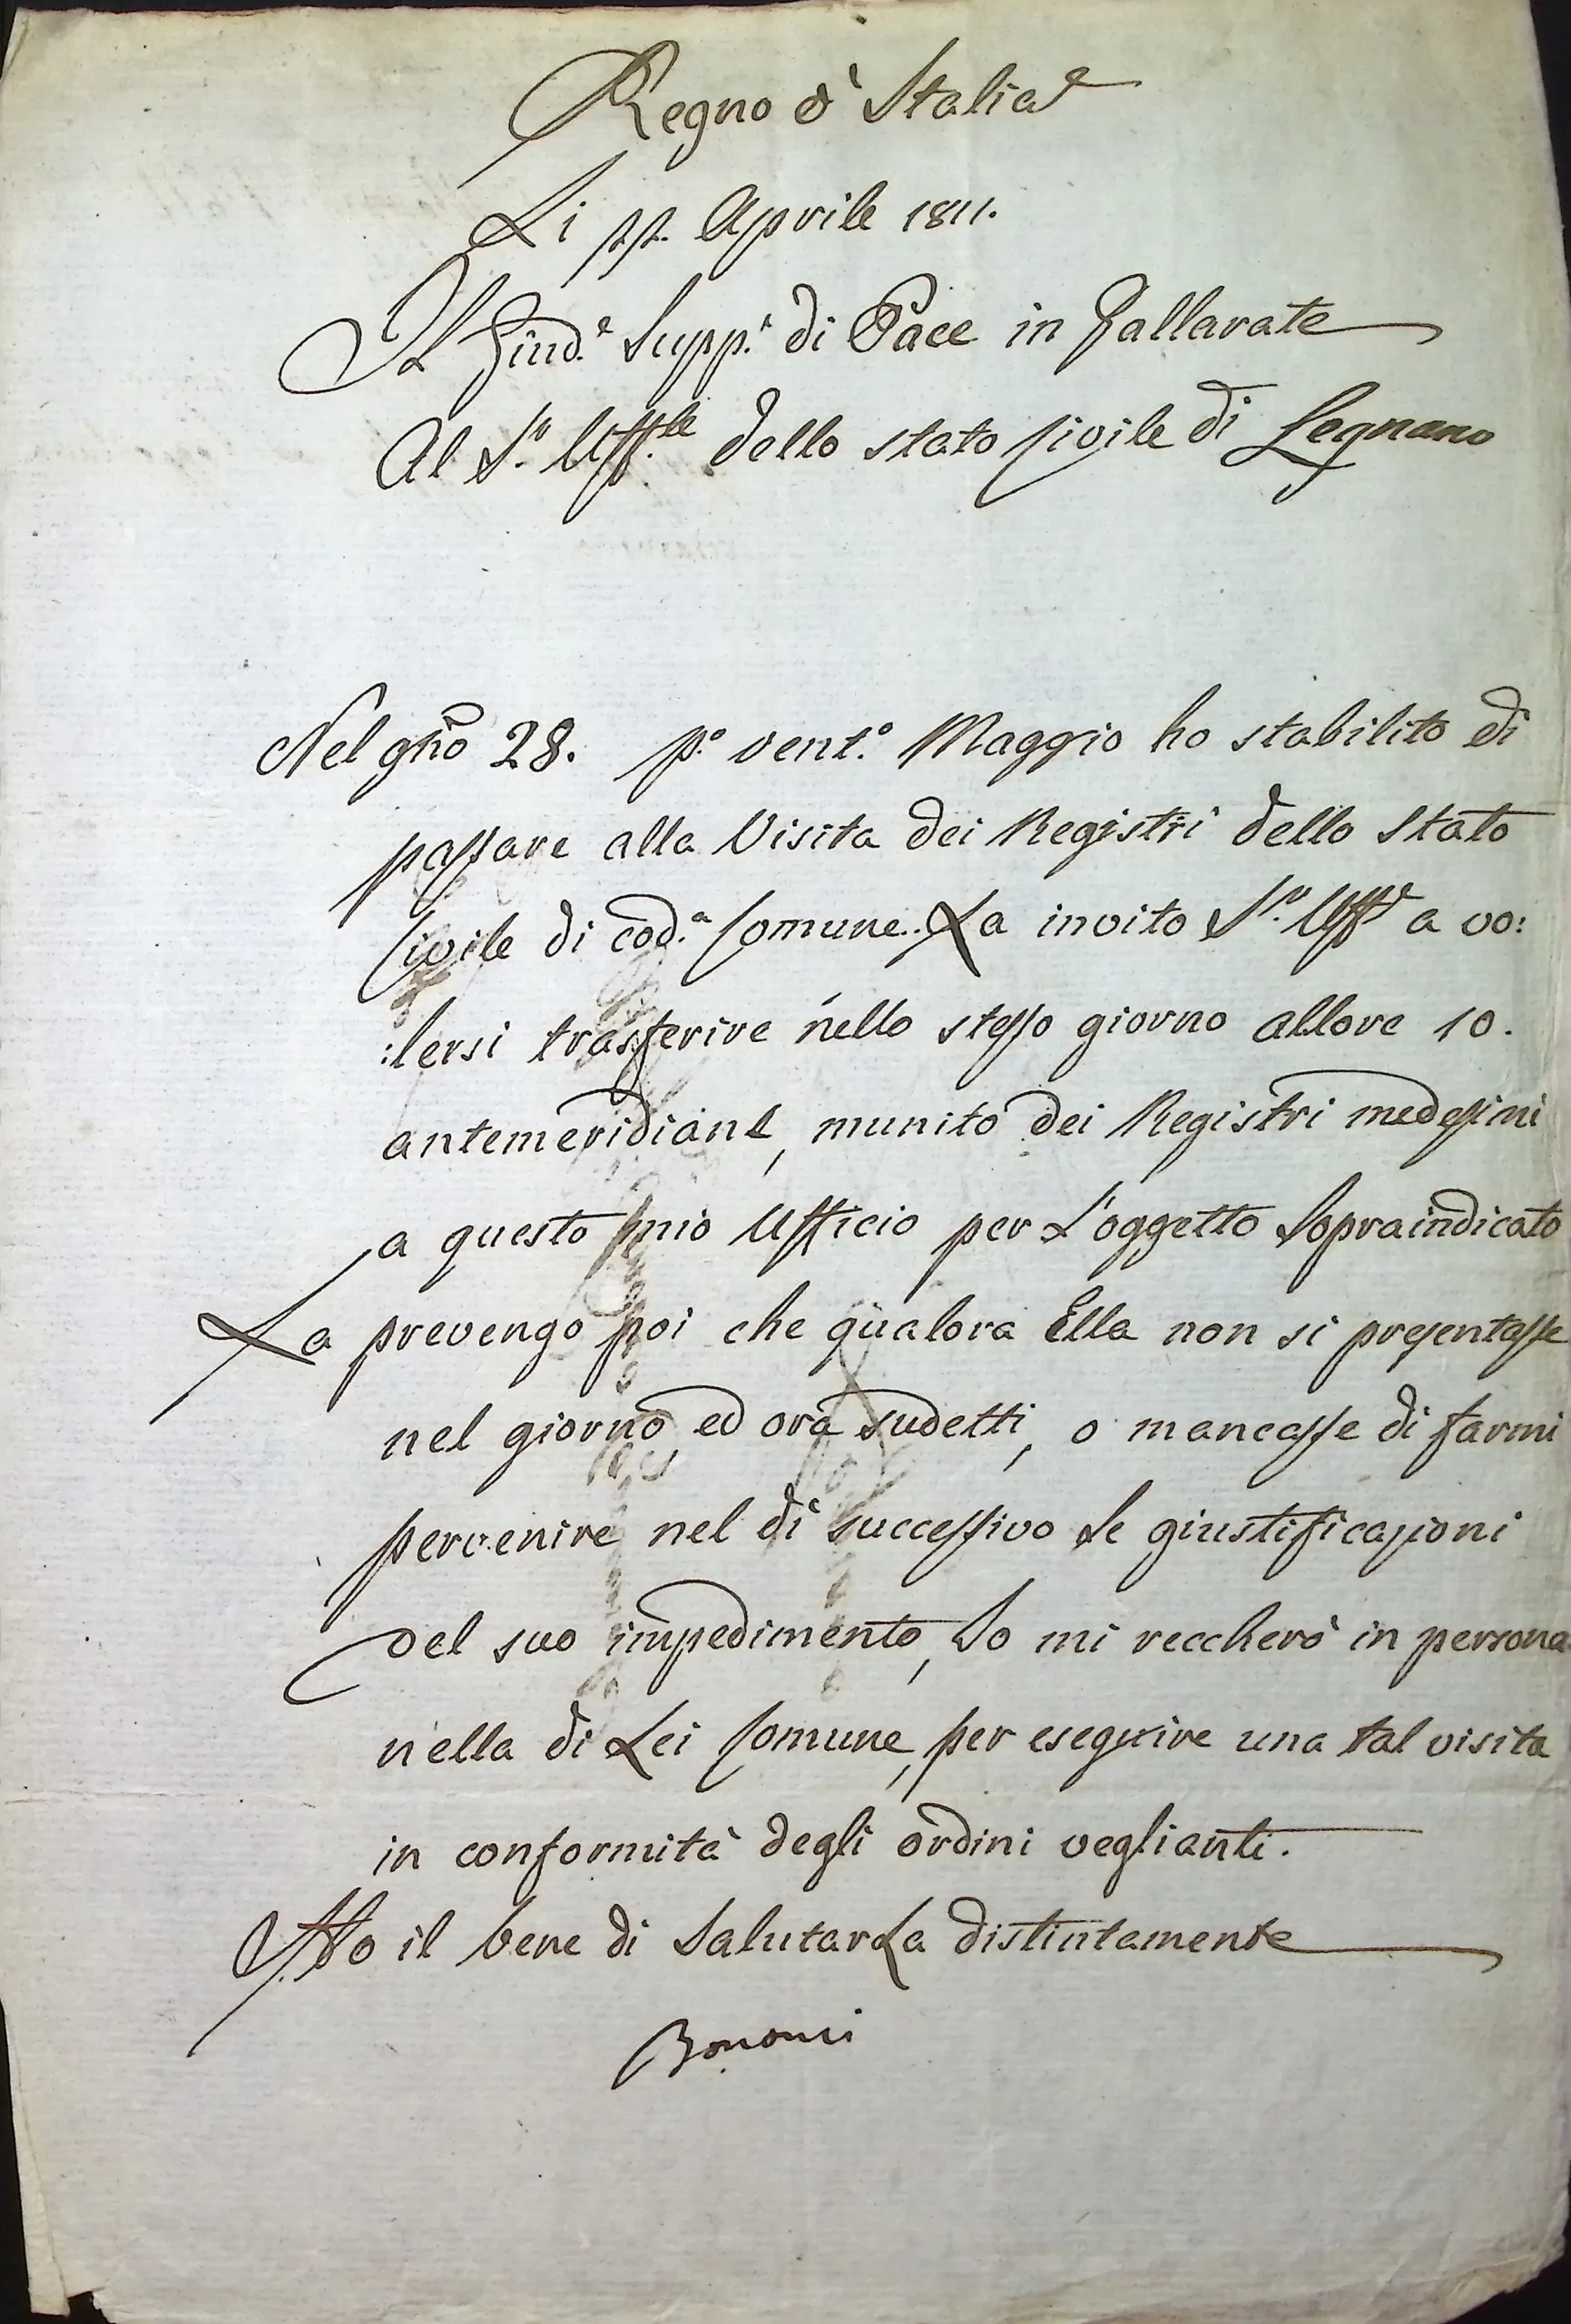 Regno d'Italia
Li 22. Aprile 1811.
Il Giud.e Supp.e di Pace in Gallarate
Al S.r Uff.le dello stato Civile di Legnano
Nel gño 28. p.o vent.o Maggio ho stabilito di
passare alla Visita dei Registri dello Stato
Civile di cod.a Comune. La invito S.r Uff.e a vo:
:lersi trasferire nello stesso giorno allore 10.
antemeridiane, munito dei Registri medesimi
a questo mio Ufficio per L'oggetto Sopraindicato
La prevengo poi che qualora Ella non si presentasse
nel giorno, ed ora sudetti, o mancasse di farmi
pervenire nel dì successivo Le giustificazioni
del suo impedimento, Io mi reccherò in persona
nella di Lei Comune, per eseguire una tal visita
in conformità degli ordini veglianti.
Ho il bene di SalutarLa distintamente
Bonomi